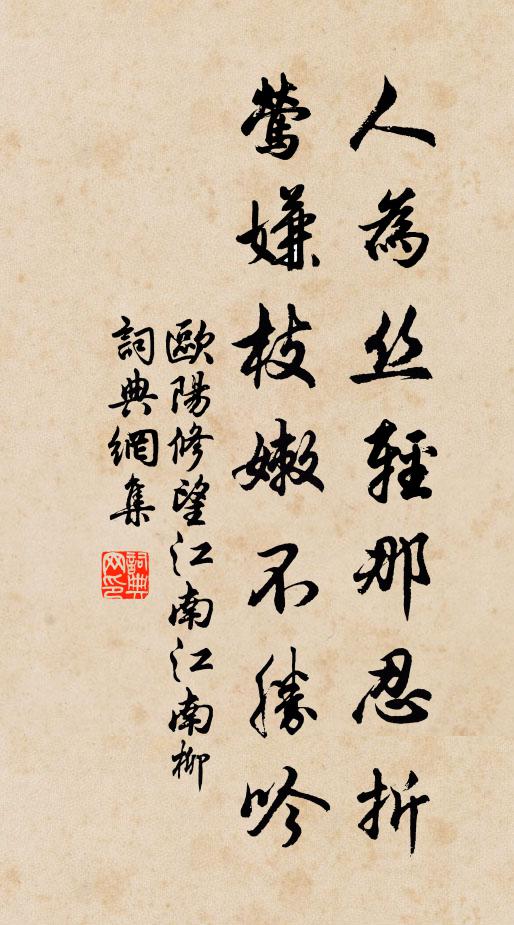 人為丝輕那忍折
鶯嫌枝嫩不勝吟
歐陽修望江南江南柳
詞典網集
詞典网印